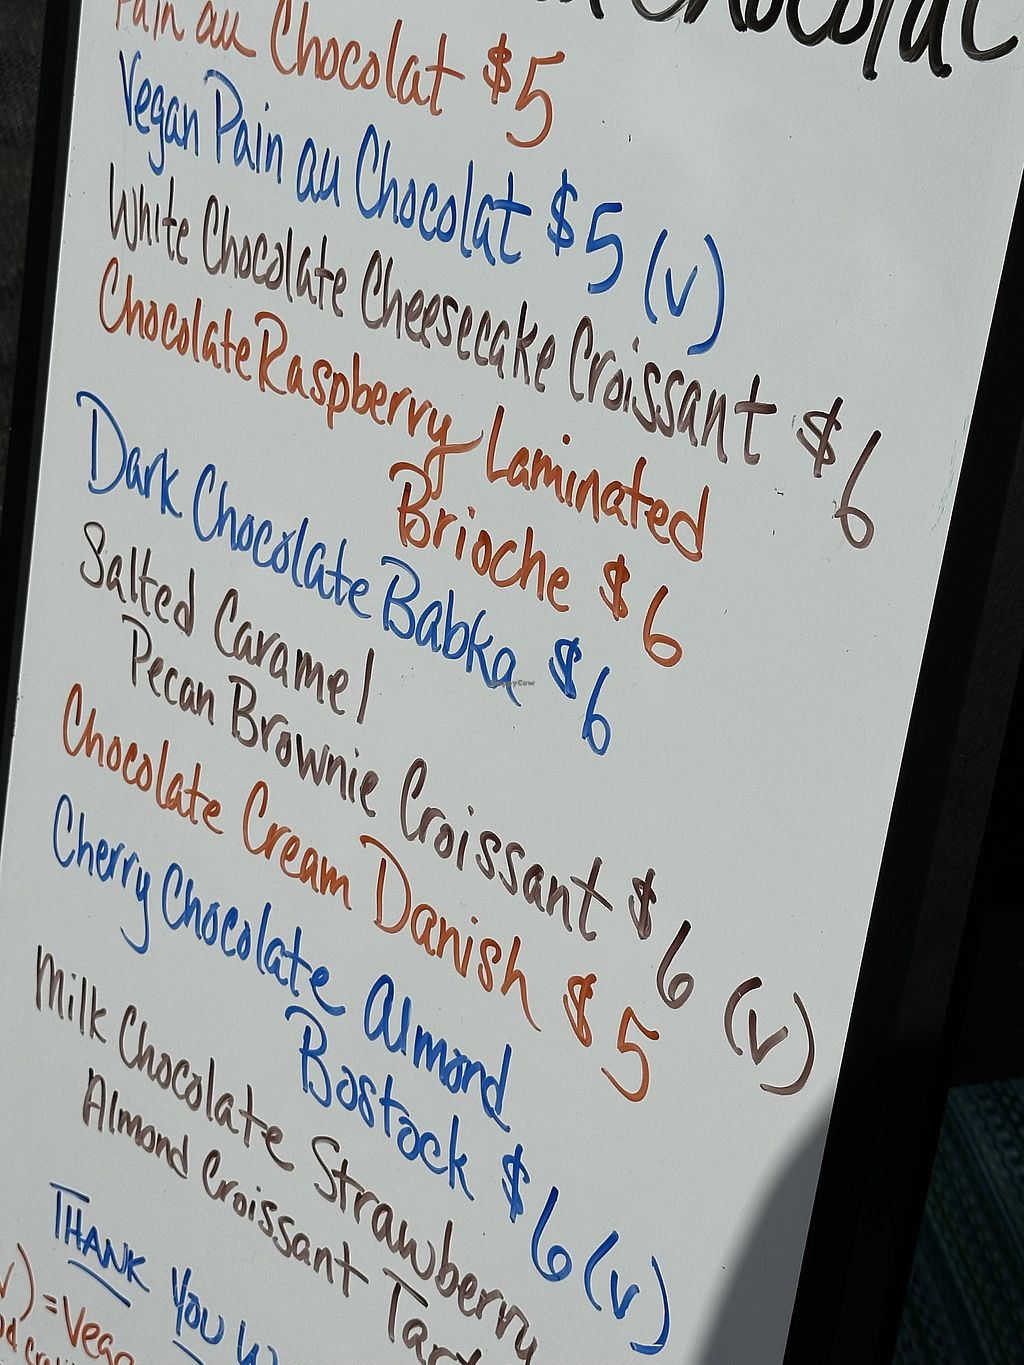 Chocolat
Pain au Chocolat $5
Vegan Pain au Chocolat $5 (v)
White Chocolate Cheesecake Croissant $6
Chocolate Raspberry Laminated
Brioche $6
Dark Chocolate Babka $6
Salted Caramel
Pecan Brownie Croissant $6 (v)
Chocolate Cream Danish $5
Cherry Chocolate Almond
Bostock $6 (v)
Milk Chocolate Strawberry
Almond Croissant Tart
THANK YOU
v) = Vega
HappyCow